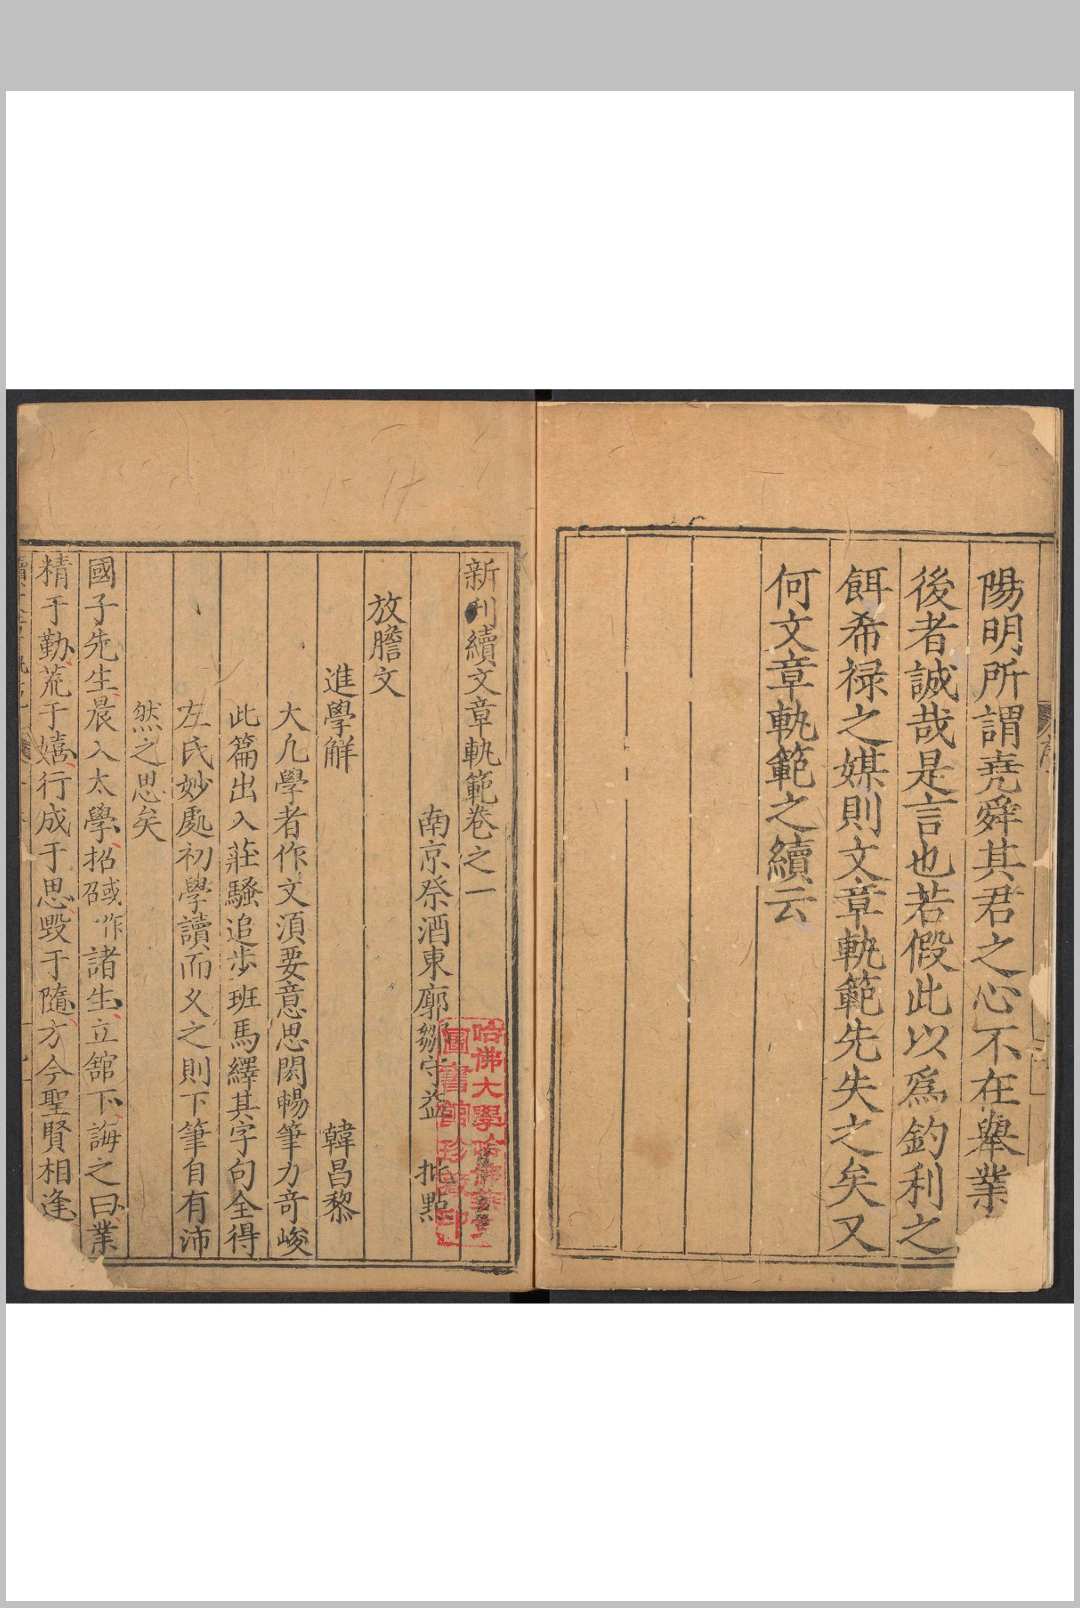 陽明所謂堯舜其君之心不在舉業
後者誠哉是言也若假此以爲釣利之
餌希祿之媒則文章軌範先失之矣又
何文章軌範之續云
新刊續文章軌範卷之一
南京祭酒東廓鄒守益 批點
放膽文
進學觧 韓昌黎
大凢學者作文須要意思閎暢筆力竒峻
此篇出入莊騷追步班馬繹其字句全得
左氏妙處初學讀而乂之則下筆自有沛
然之思矣
國子先生晨入太學招 諸生立舘下誨之曰業
精于勤荒于嬉行成于思毀于隨方今聖賢相逢
哈佛大學哈佛燕京
圖書館珍藏印